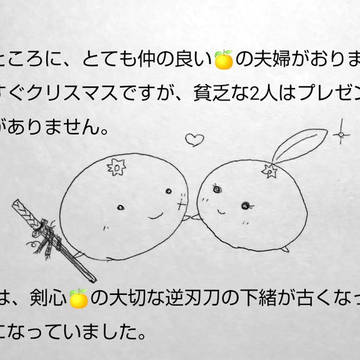 ところに、とても仲の良い🍊の夫婦がおりま
すぐクリスマスですが、貧乏な2人はプレゼン
がありません。
は、剣心🍊の大切な逆刃刀の下緒が古くなっ
になっていました。